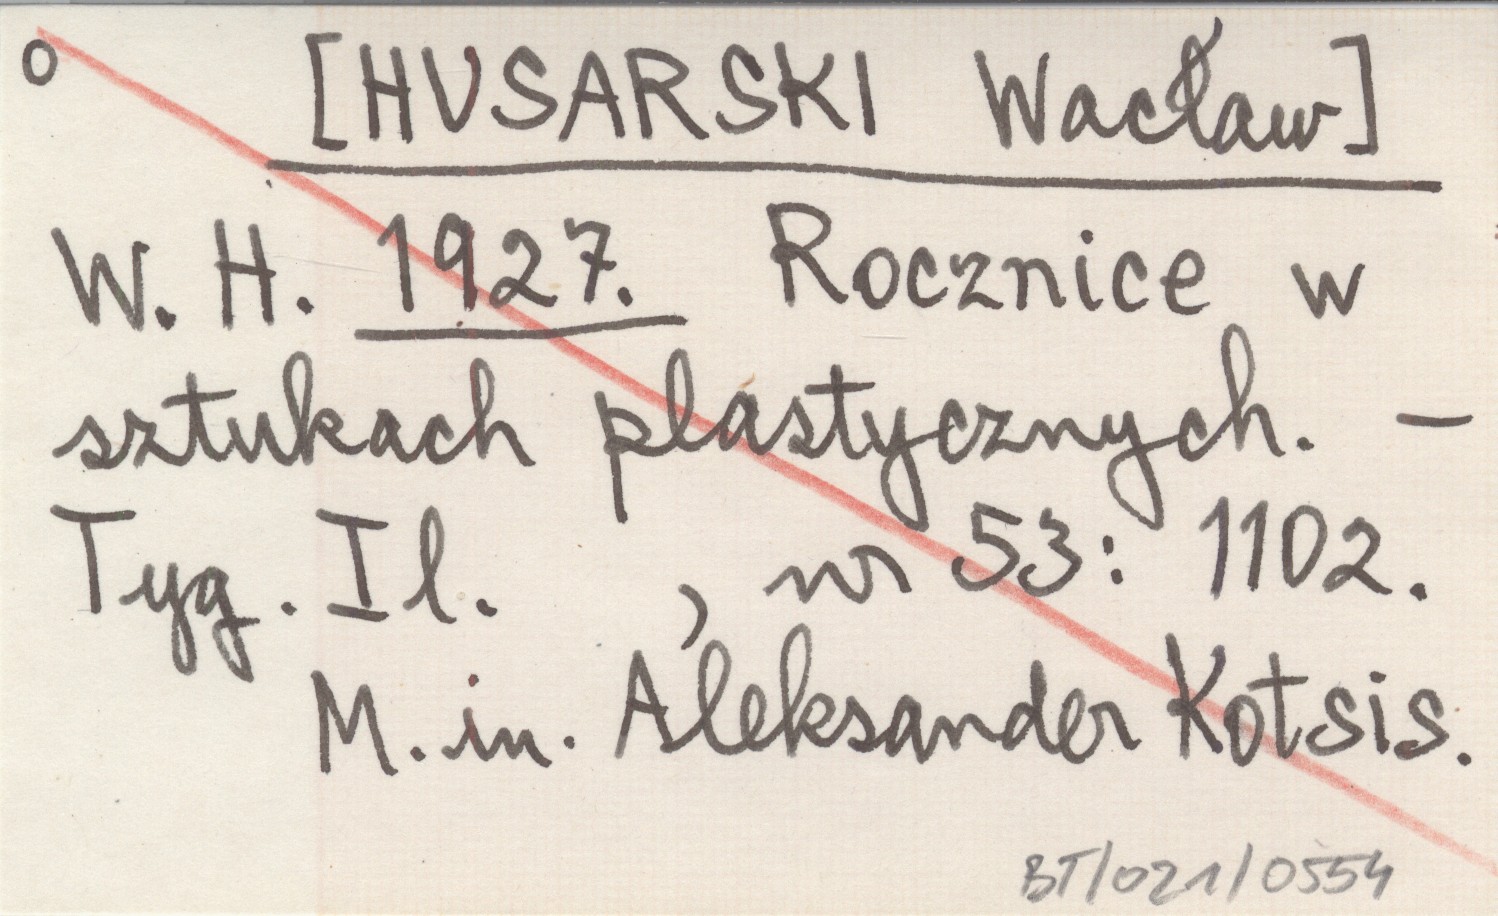 o [HUSARSKI Wacław]
W. H. 1927. Rocznice w
sztukach plastycznych. –
Tyg. Il. , nr 53: 1102.
M. in. Aleksander Kotsis.
BT/021/0554